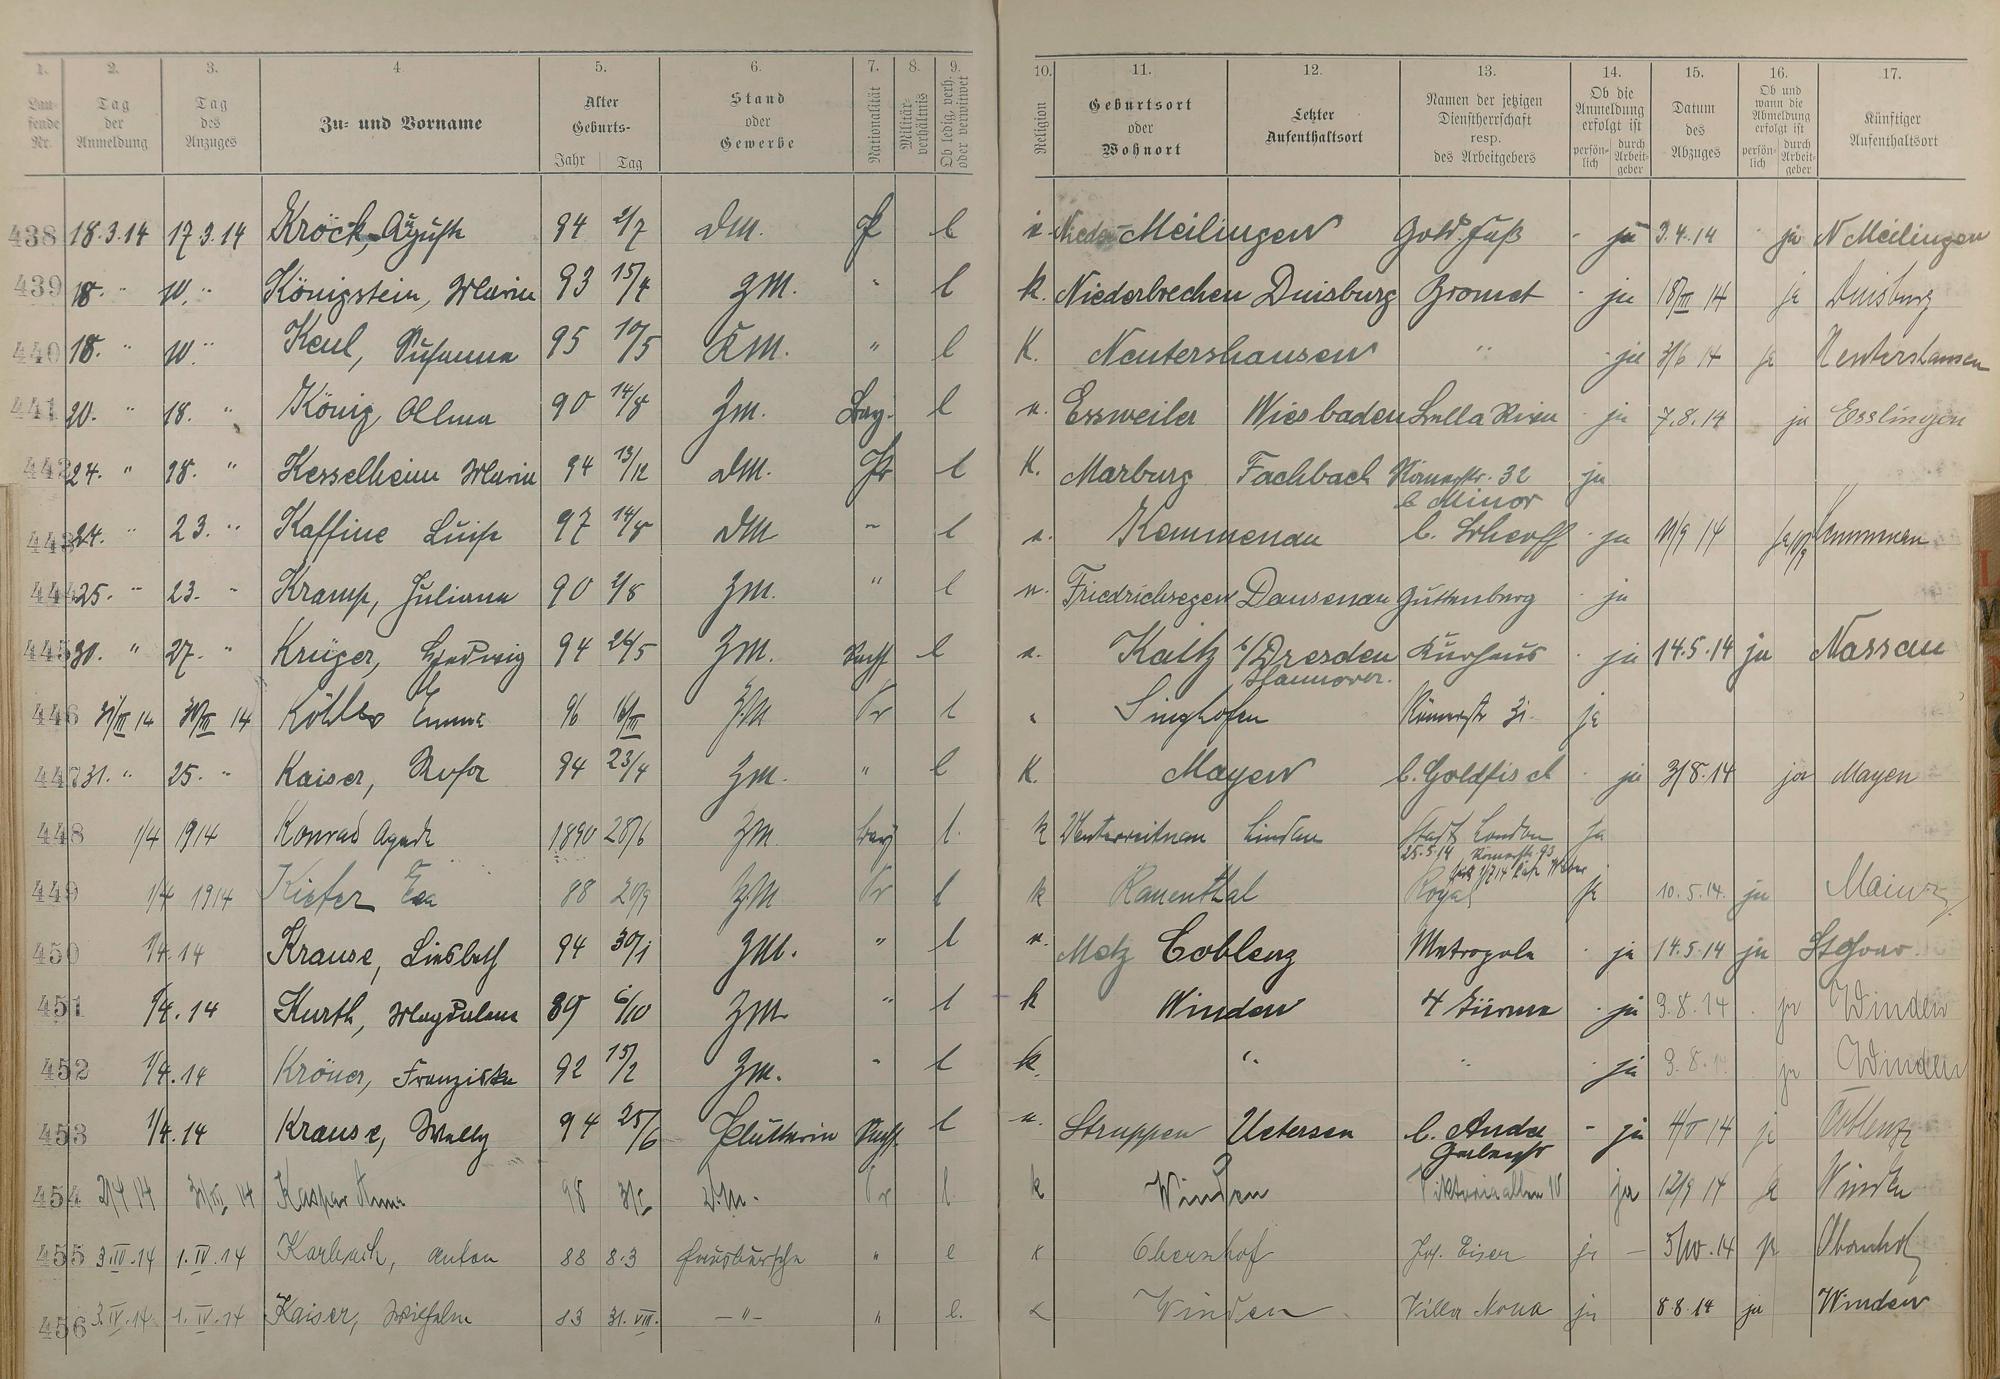 1. 2. 3. 4 5. 6. 7. 8. 9. 10. 11. 12. 13. 14. 15. 16. 17.
Laufende Nr. Tag der Anmeldung Tag des Anzuges Zu- und Vorname Alter Geburts- Jahr Tag Stand oder Gewerbe Nationalität Militärverhältnis Ob ledig, verh. oder verwitwet Religion Geburtsort oder Wohnort Letzter Aufenthaltsort Namen der jetzigen Dienstherrschaft resp. des Arbeitgebers Ob die Anmeldung erfolgt ist persönlich durch Arbeitgeber Datum des Abzuges Ob und wann die Abmeldung erfolgt ist persönlich durch Arbeitgeber Künftiger Aufenthaltsort
438 18.3.14 17.3.14 Kröck, August 94 2/7 DM. l Meilingen Gold. Faß ja 3.4.14 ja N Meilingen
439 18. " Königstein, Maria 93 15/4 ZM. " l k. Niederbrechen Duisburg Bromet ja 18/III 14 ja Duisburg
440 18. " Keul, Susanna 95 10/5 KM. " l K. Nentershausen " ja 3/6 14 ja Nentershausen
441 20. " 18. " König, Alma 90 14/8 Zm. Bay. l Essweiler Wiesbaden Bella Riva ja 7.8.14 ja Esslingen
442 24. " 18. " Kesselheim Maria 94 13/12 DM. Pr l K. Marburg Fachbach Römerstr. 32 b Minor ja
443 24. " 23. " Kaffine Luise 97 14/8 DM " l Kemmenau ja 11/9 14 ja Kemmenau
444 25. " 23. " Kramp, Juliana 90 2/8 ZM. " l Friedrichsegen Dausenau Guttenberg ja
445 30. " 27. " Krüger, Hedwig 94 26/5 ZM. Sachs l Kaitz b/Dresden Hannover. Kurhaus ja 14.5.14 ja Nassau
446 31/III 14 30/III 14 Köhler Emma 96 16/III ZM Pr l Singhofen Römerstr 31. ja
447 31. " 25. " Kaiser, Rosa 94 23/4 ZM. " l K. Mayen b. Goldfisch ja 3/8.14 ja Mayen
448 1/4 1914 Konrad Agathe 1890 28/6 ZM Bay l. k Lindau Stadt London ja
25.5.14 Römerstr. 93
449 1/4 1914 Kiefer Eva 88 20/9 ZM Pr l k Rauenthal Royal ja 10.5.14. ja Mainz
450 1/4.14 Krause, Liesbeth 94 30/1 ZM. " l Metz Coblenz Metropole ja 14.5.14 ja St Goar.
451 1/4.14 Kurth, Magdalena 89 6/10 ZM. " l k Winden 4 Türme ja 9.8.14 ja Winden
452 1/4.14 Kröner, Franziska 92 15/2 ZM. " l k. " " ja 9.8.14 ja Winden
453 1/4.14 Krause, Welly 94 25/6 Plätterin Sachs. l Struppen Uetersen ja 4/V 14 ja Coblenz
454 2/4 14 31/III 14 Kaspar Anna 98 DM. Pr l. k Winden Viktoriaallee 10 ja 12/9 14 ja Winden
455 3.IV.14 1.IV.14 Karbach, Anton 88 8.3 Hausbursche " l K Obernhof Jos. Eiser ja — 5/IV.14 ja Obernhof
456 3.IV.14 1.IV.14 Kaiser, Wilhelm 83 31.VIII. — " — " l. Winden Villa Nova ja 8 8.14 ja Winden